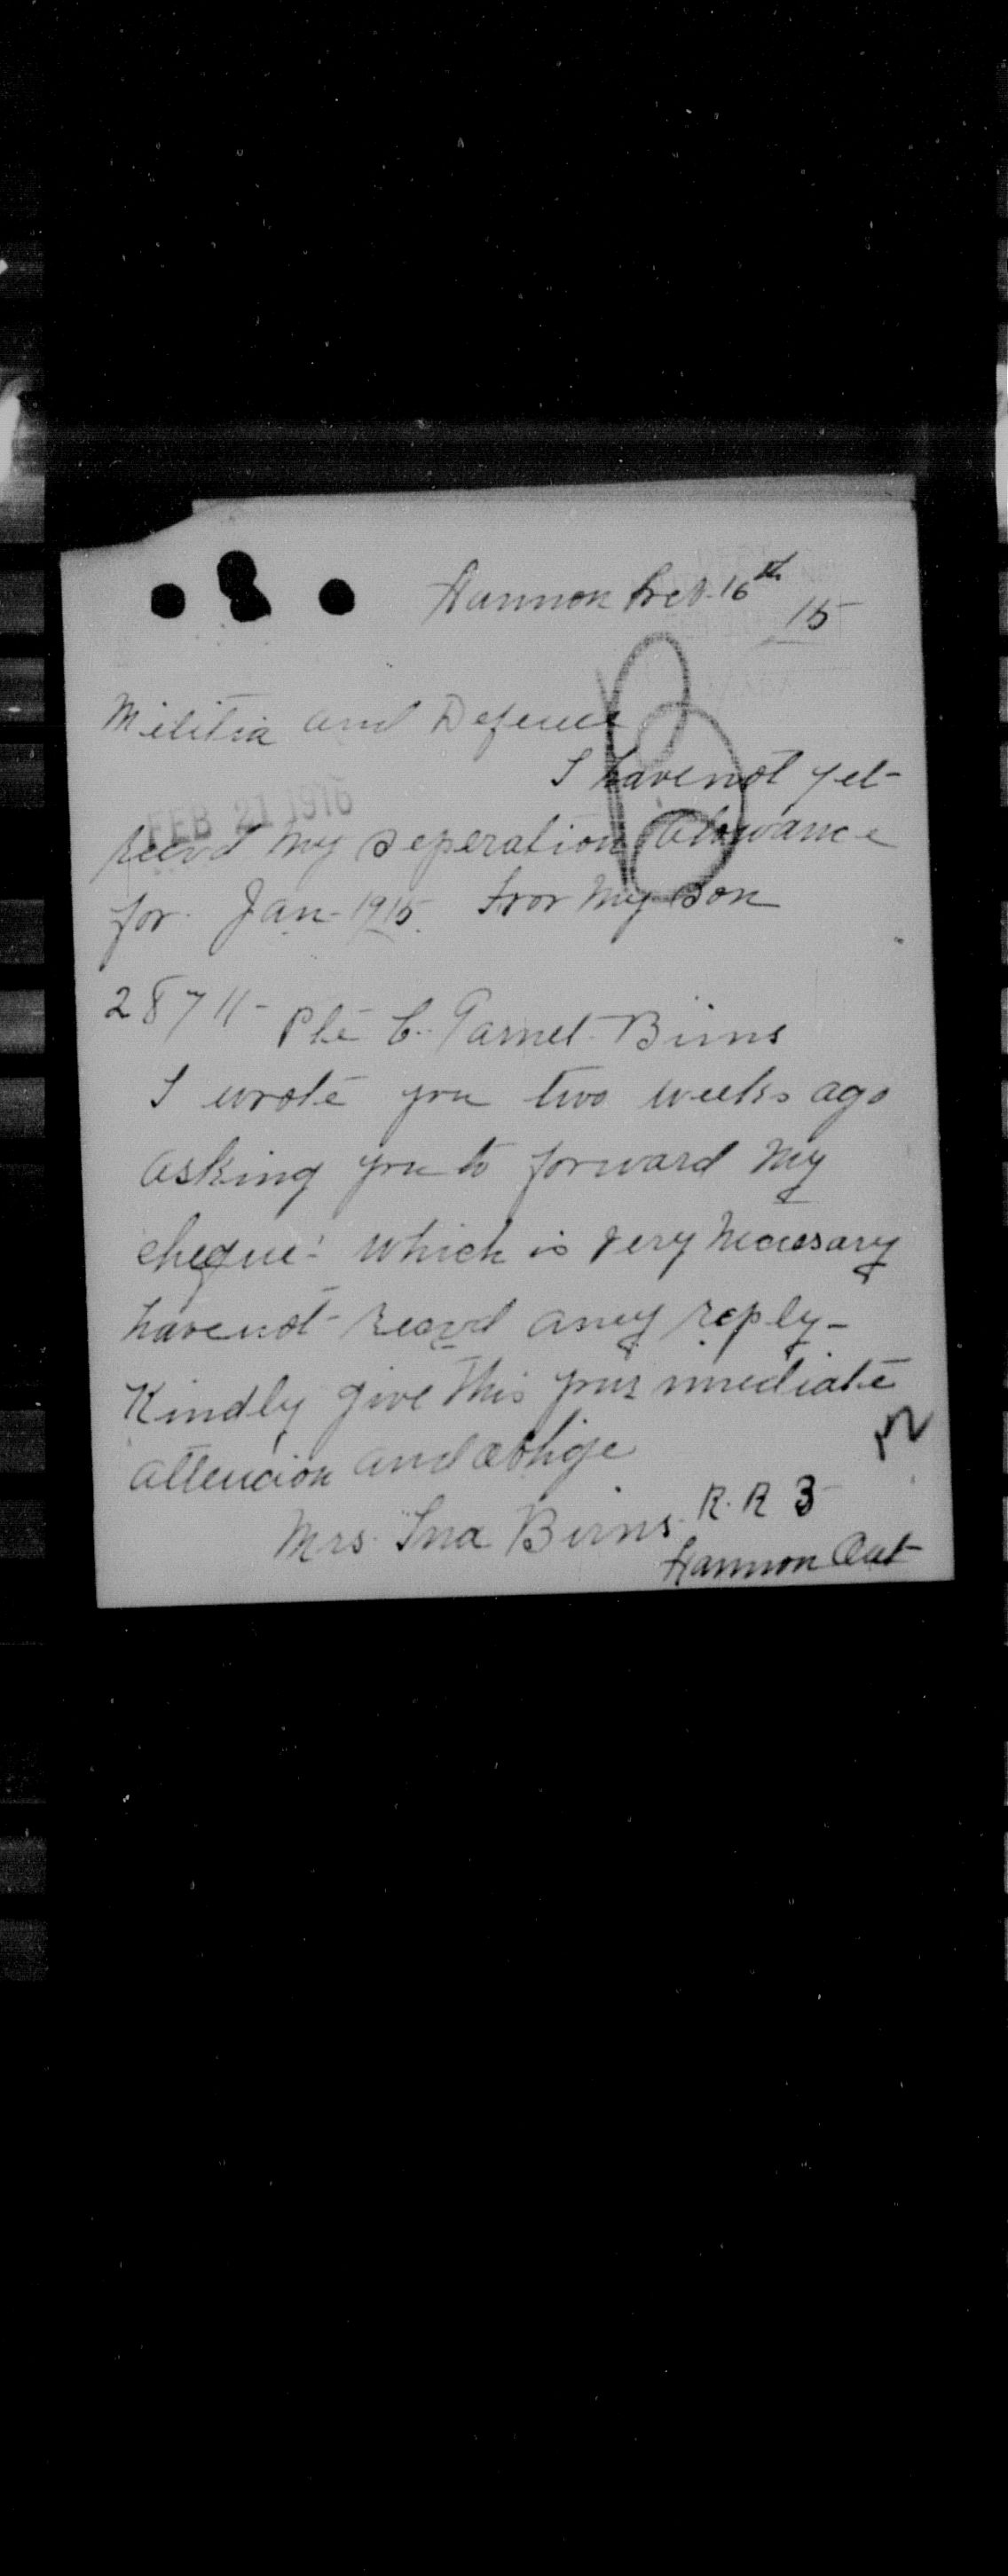 Hannon Feb. 16th
15
Militia and Defence
I have not yet
FEB 21 1916
recvd my seperation allowance
for Jan 1915. for my son
28711 Pte C. Garnet Birns
I wrote you two weeks ago
asking you to forward my
cheque which is very necessary
have not recvd any reply -
Kindly give this your imediate
attencion and oblige
Mrs. Ina Birns. R. R 3
Hannon Ont